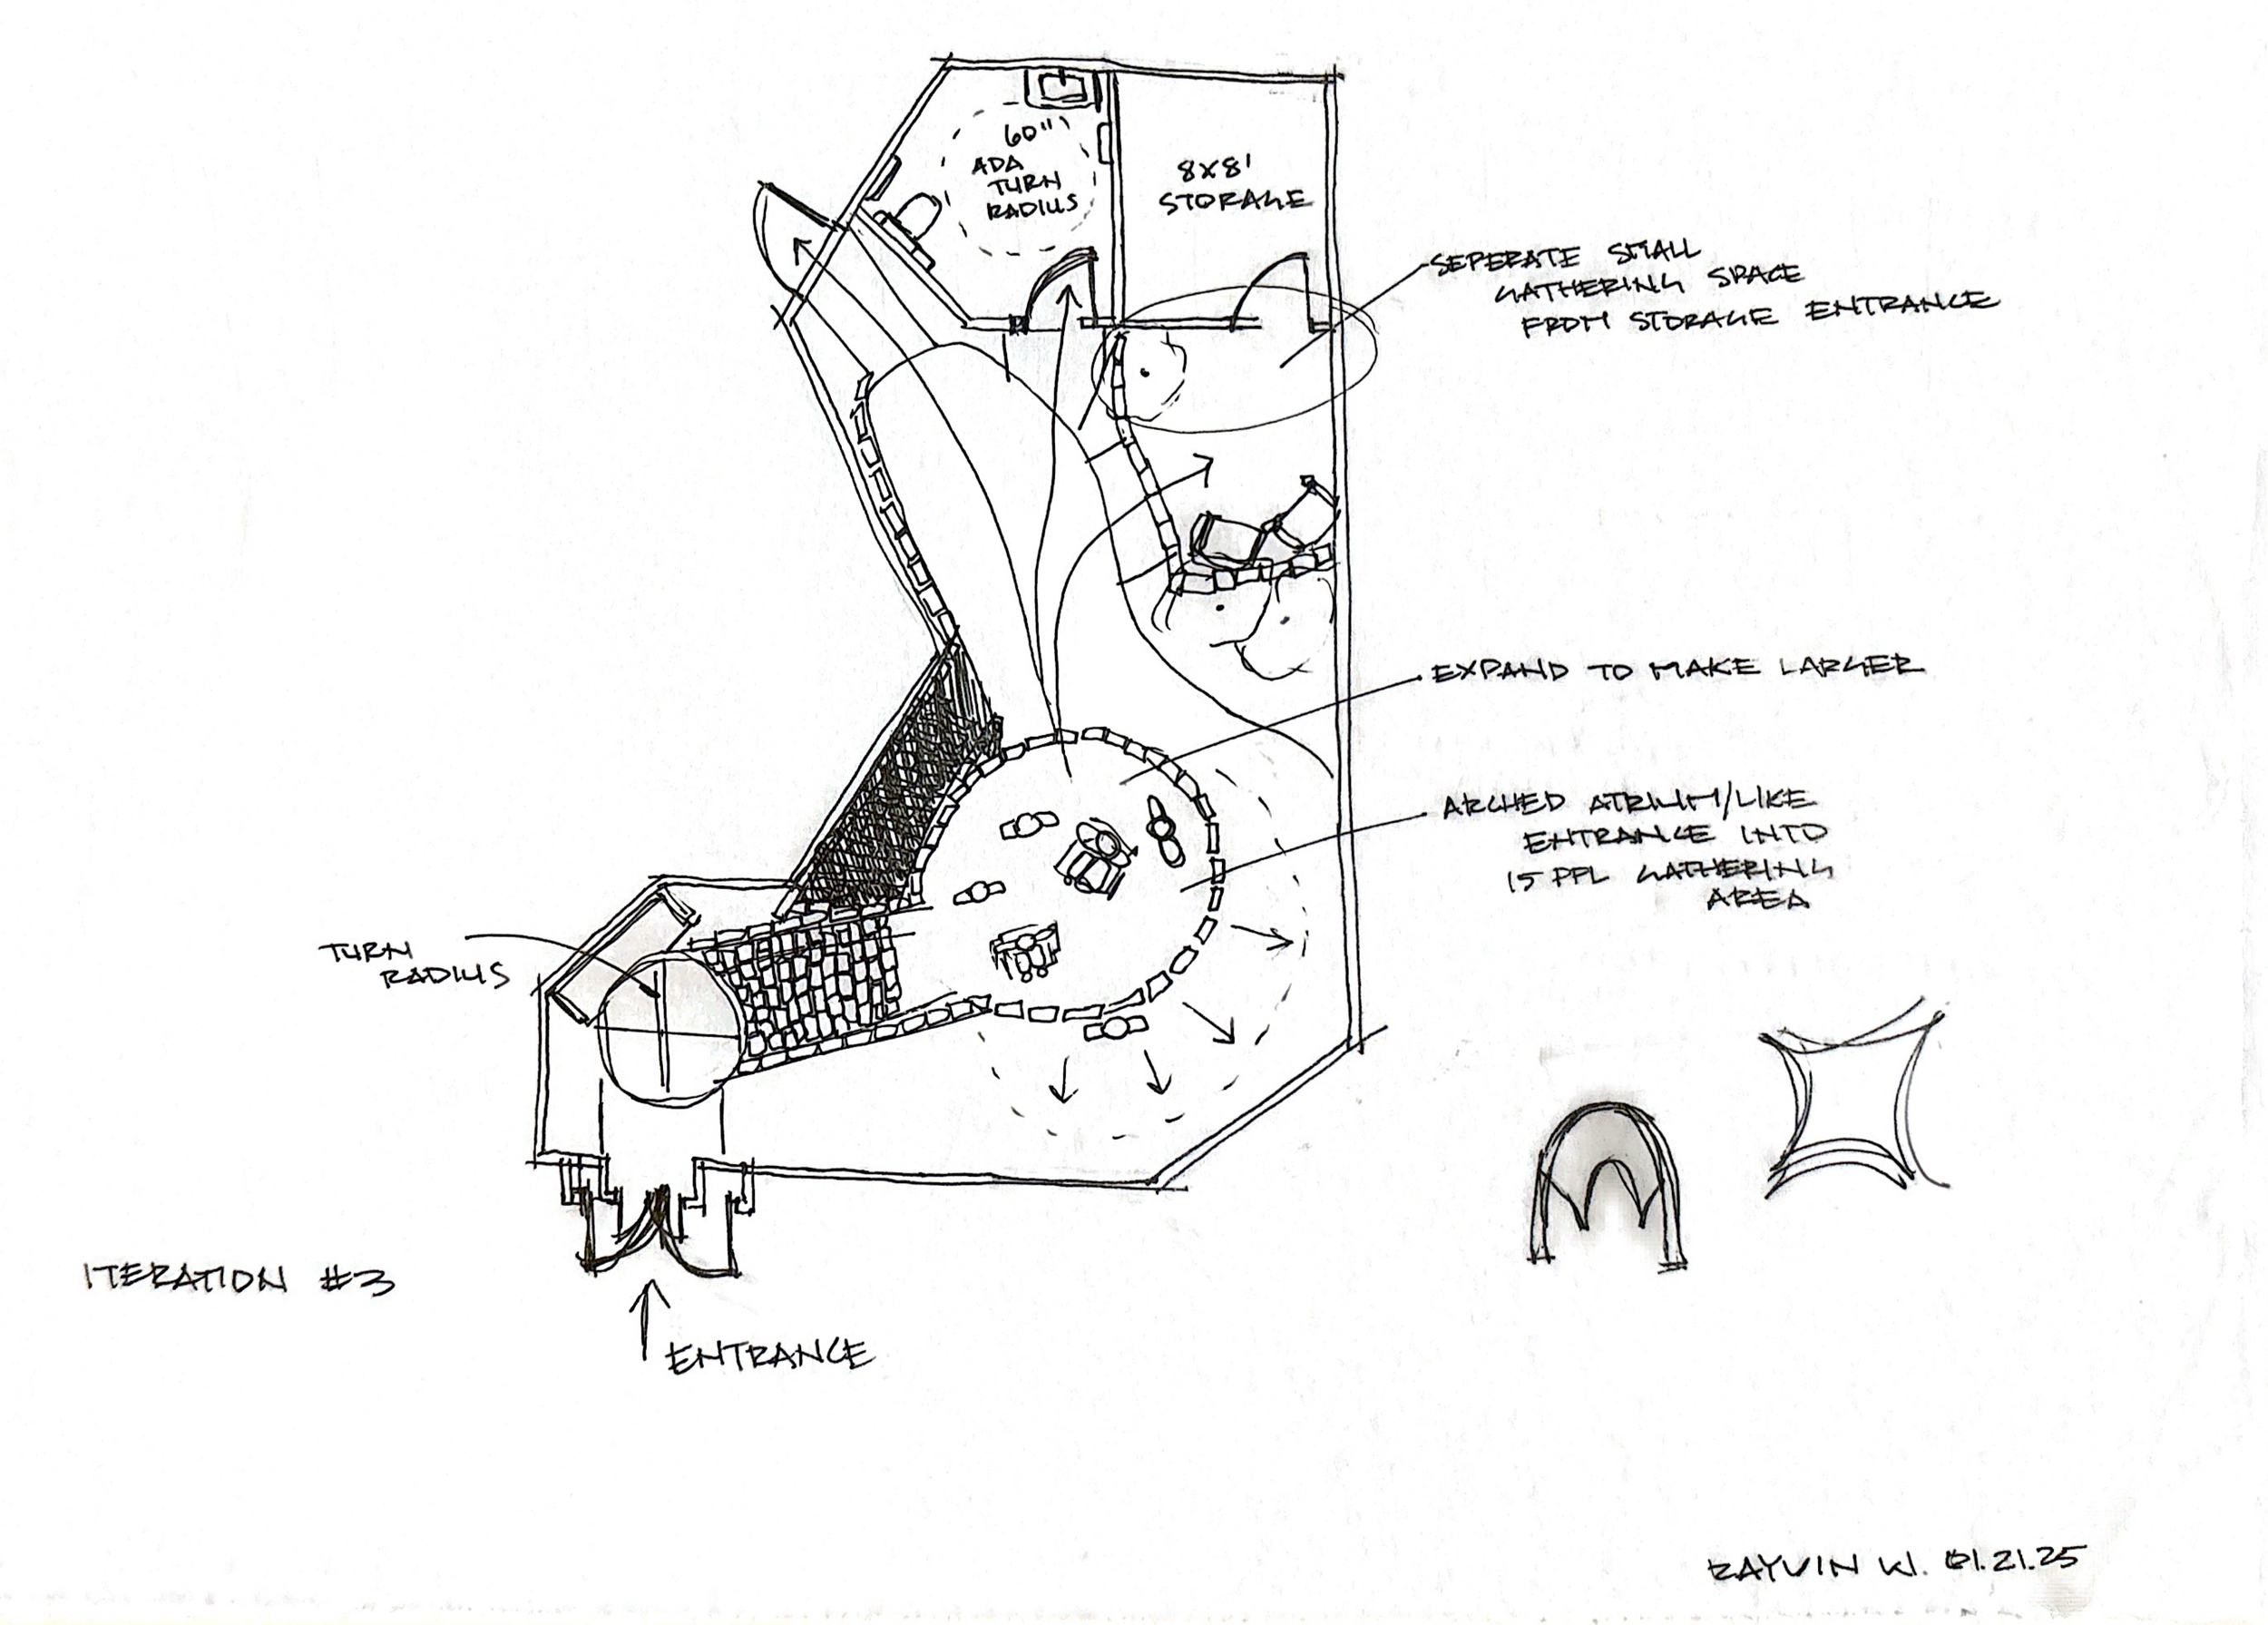 60"
ADA
TURN
RADIUS
8X8'
STORAGE
SEPERATE SMALL
GATHERING SPACE
FROM STORAGE ENTRANCE
EXPAND TO MAKE LARGER
ARCHED ATRIUM/LIKE
ENTRANCE INTO
15 PPL GATHERING
AREA
TURN
RADIUS
ITERATION #3
ENTRANCE
RAYVIN W. 01.21.25